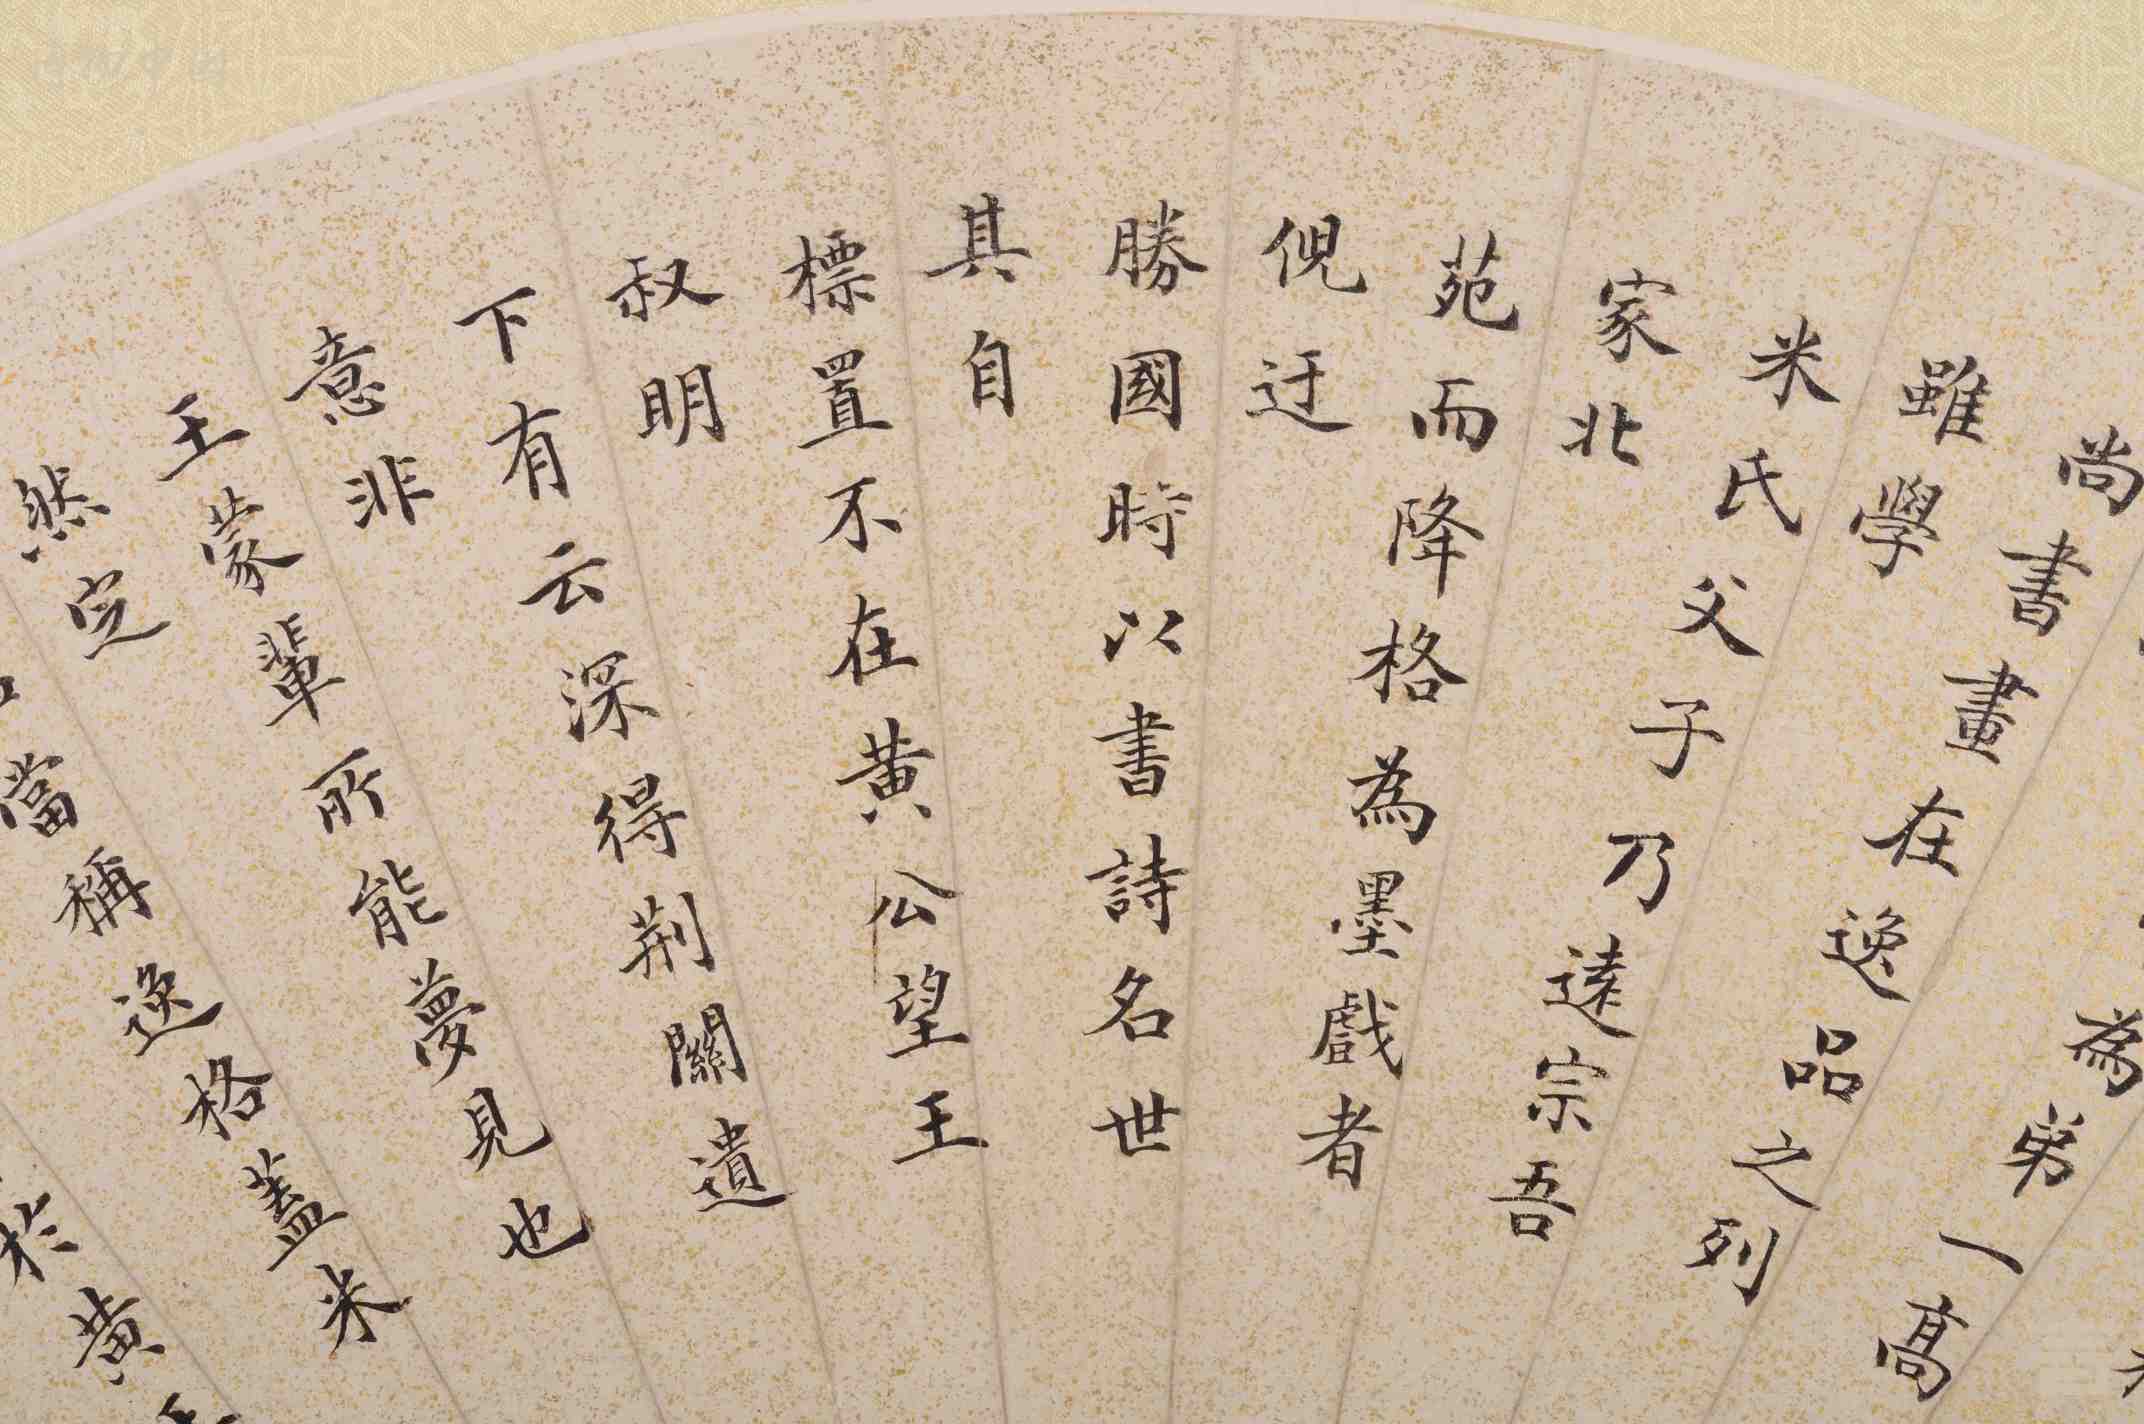 為弟一高
尚書畫在逸品之列
雖學
米氏父子乃遠宗吾
家北
苑而降格為墨戲者
倪迂
勝國時以書詩名世
其自
標置不在黃公望王
叔明
下有云深得荊關遺
意非
王蒙輩所能夢見也
然定
當稱逸格蓋米
於黃